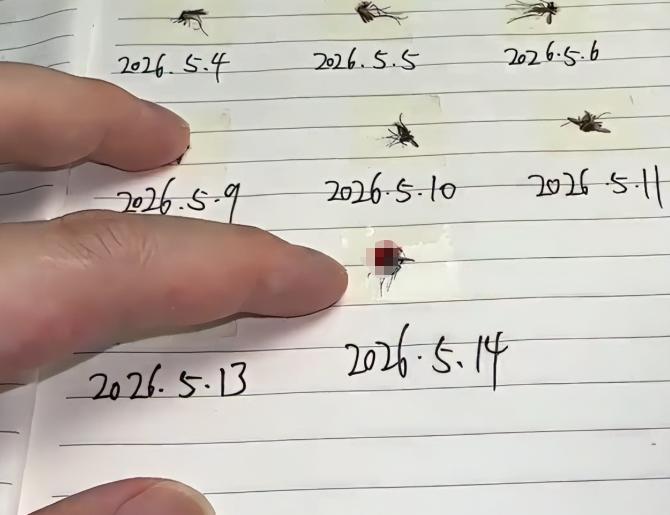 2026.5.4 2026.5.5 2026.5.6
2026.5.9 2026.5.10 2026.5.11
2026.5.13 2026.5.14